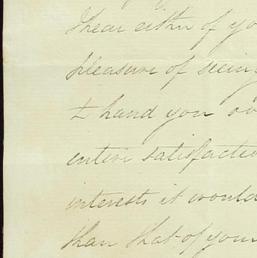 I hear either of yo
pleasure of seeing
& hand you ov
entire satisfactio
interests it would
than that of your